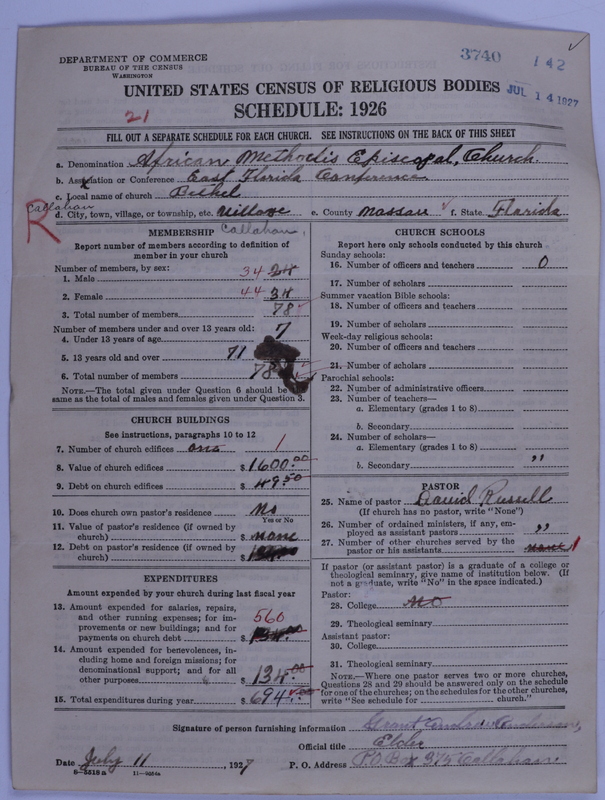 3740 142
JUL 14 1927
DEPARTMENT OF COMMERCE
BUREAU OF THE CENSUS
WASHINGTON
UNITED STATES CENSUS OF RELIGIOUS BODIES
SCHEDULE: 1926
21
FILL OUT A SEPARATE SCHEDULE FOR EACH CHURCH. SEE INSTRUCTIONS ON THE BACK OF THIS SHEET
a. Denomination African Methodis Episcopal, Church.
b. Association or Conference East Florida Conference
c. Local name of church Bethel
Callahan
R
d. City, town, village, or township, etc. Village e. County Nassau f. State Florida
Callahan,
MEMBERSHIP
Report number of members according to definition of
member in your church
Number of members, by sex:
1. Male 34
2. Female 44 34
3. Total number of members 78
Number of members under and over 13 years old:
4. Under 13 years of age 7
5. 13 years old and over 71
6. Total number of members 78
NOTE.—The total given under Question 6 should be the
same as the total of males and females given under Question 3.
CHURCH BUILDINGS
See instructions, paragraphs 10 to 12
7. Number of church edifices one 1
8. Value of church edifices $ 1600.00
9. Debt on church edifices $ 49.50
10. Does church own pastor's residence? No
Yes or No
11. Value of pastor's residence (if owned by
church) $ none
12. Debt on pastor's residence (if owned by
church) $
EXPENDITURES
Amount expended by your church during last fiscal year
13. Amount expended for salaries, repairs,
and other running expenses; for im-
provements or new buildings; and for
payments on church debt $ 560
14. Amount expended for benevolences, in-
cluding home and foreign missions; for
denominational support; and for all
other purposes $ 134.00
15. Total expenditures during year $ 694.00
CHURCH SCHOOLS
Report here only schools conducted by this church
Sunday schools:
16. Number of officers and teachers 0
17. Number of scholars
Summer vacation Bible schools:
18. Number of officers and teachers
19. Number of scholars
Week-day religious schools:
20. Number of officers and teachers
21. Number of scholars
Parochial schools:
22. Number of administrative officers
23. Number of teachers—
a. Elementary (grades 1 to 8)
b. Secondary
24. Number of scholars—
a. Elementary (grades 1 to 8)
b. Secondary "
PASTOR
25. Name of pastor David Russell
(If church has no pastor, write "None")
26. Number of ordained ministers, if any, em-
ployed as assistant pastors "
27. Number of other churches served by the
pastor or his assistants none 1
If pastor (or assistant pastor) is a graduate of a college or
theological seminary, give name of institution below. (If
not a graduate, write "No" in the space indicated.)
Pastor:
28. College no
29. Theological seminary
Assistant pastor:
30. College
31. Theological seminary
NOTE.—Where one pastor serves two or more churches,
Questions 28 and 29 should be answered only on the schedule
for one of the churches; on the schedules for the other churches,
write "See schedule for church."
Signature of person furnishing information Grant Andrew Anderson,
Official title Elder
Date July 11, 1927 P. O. Address P O Box 375 Callahan
8—5518 a 11—9584a